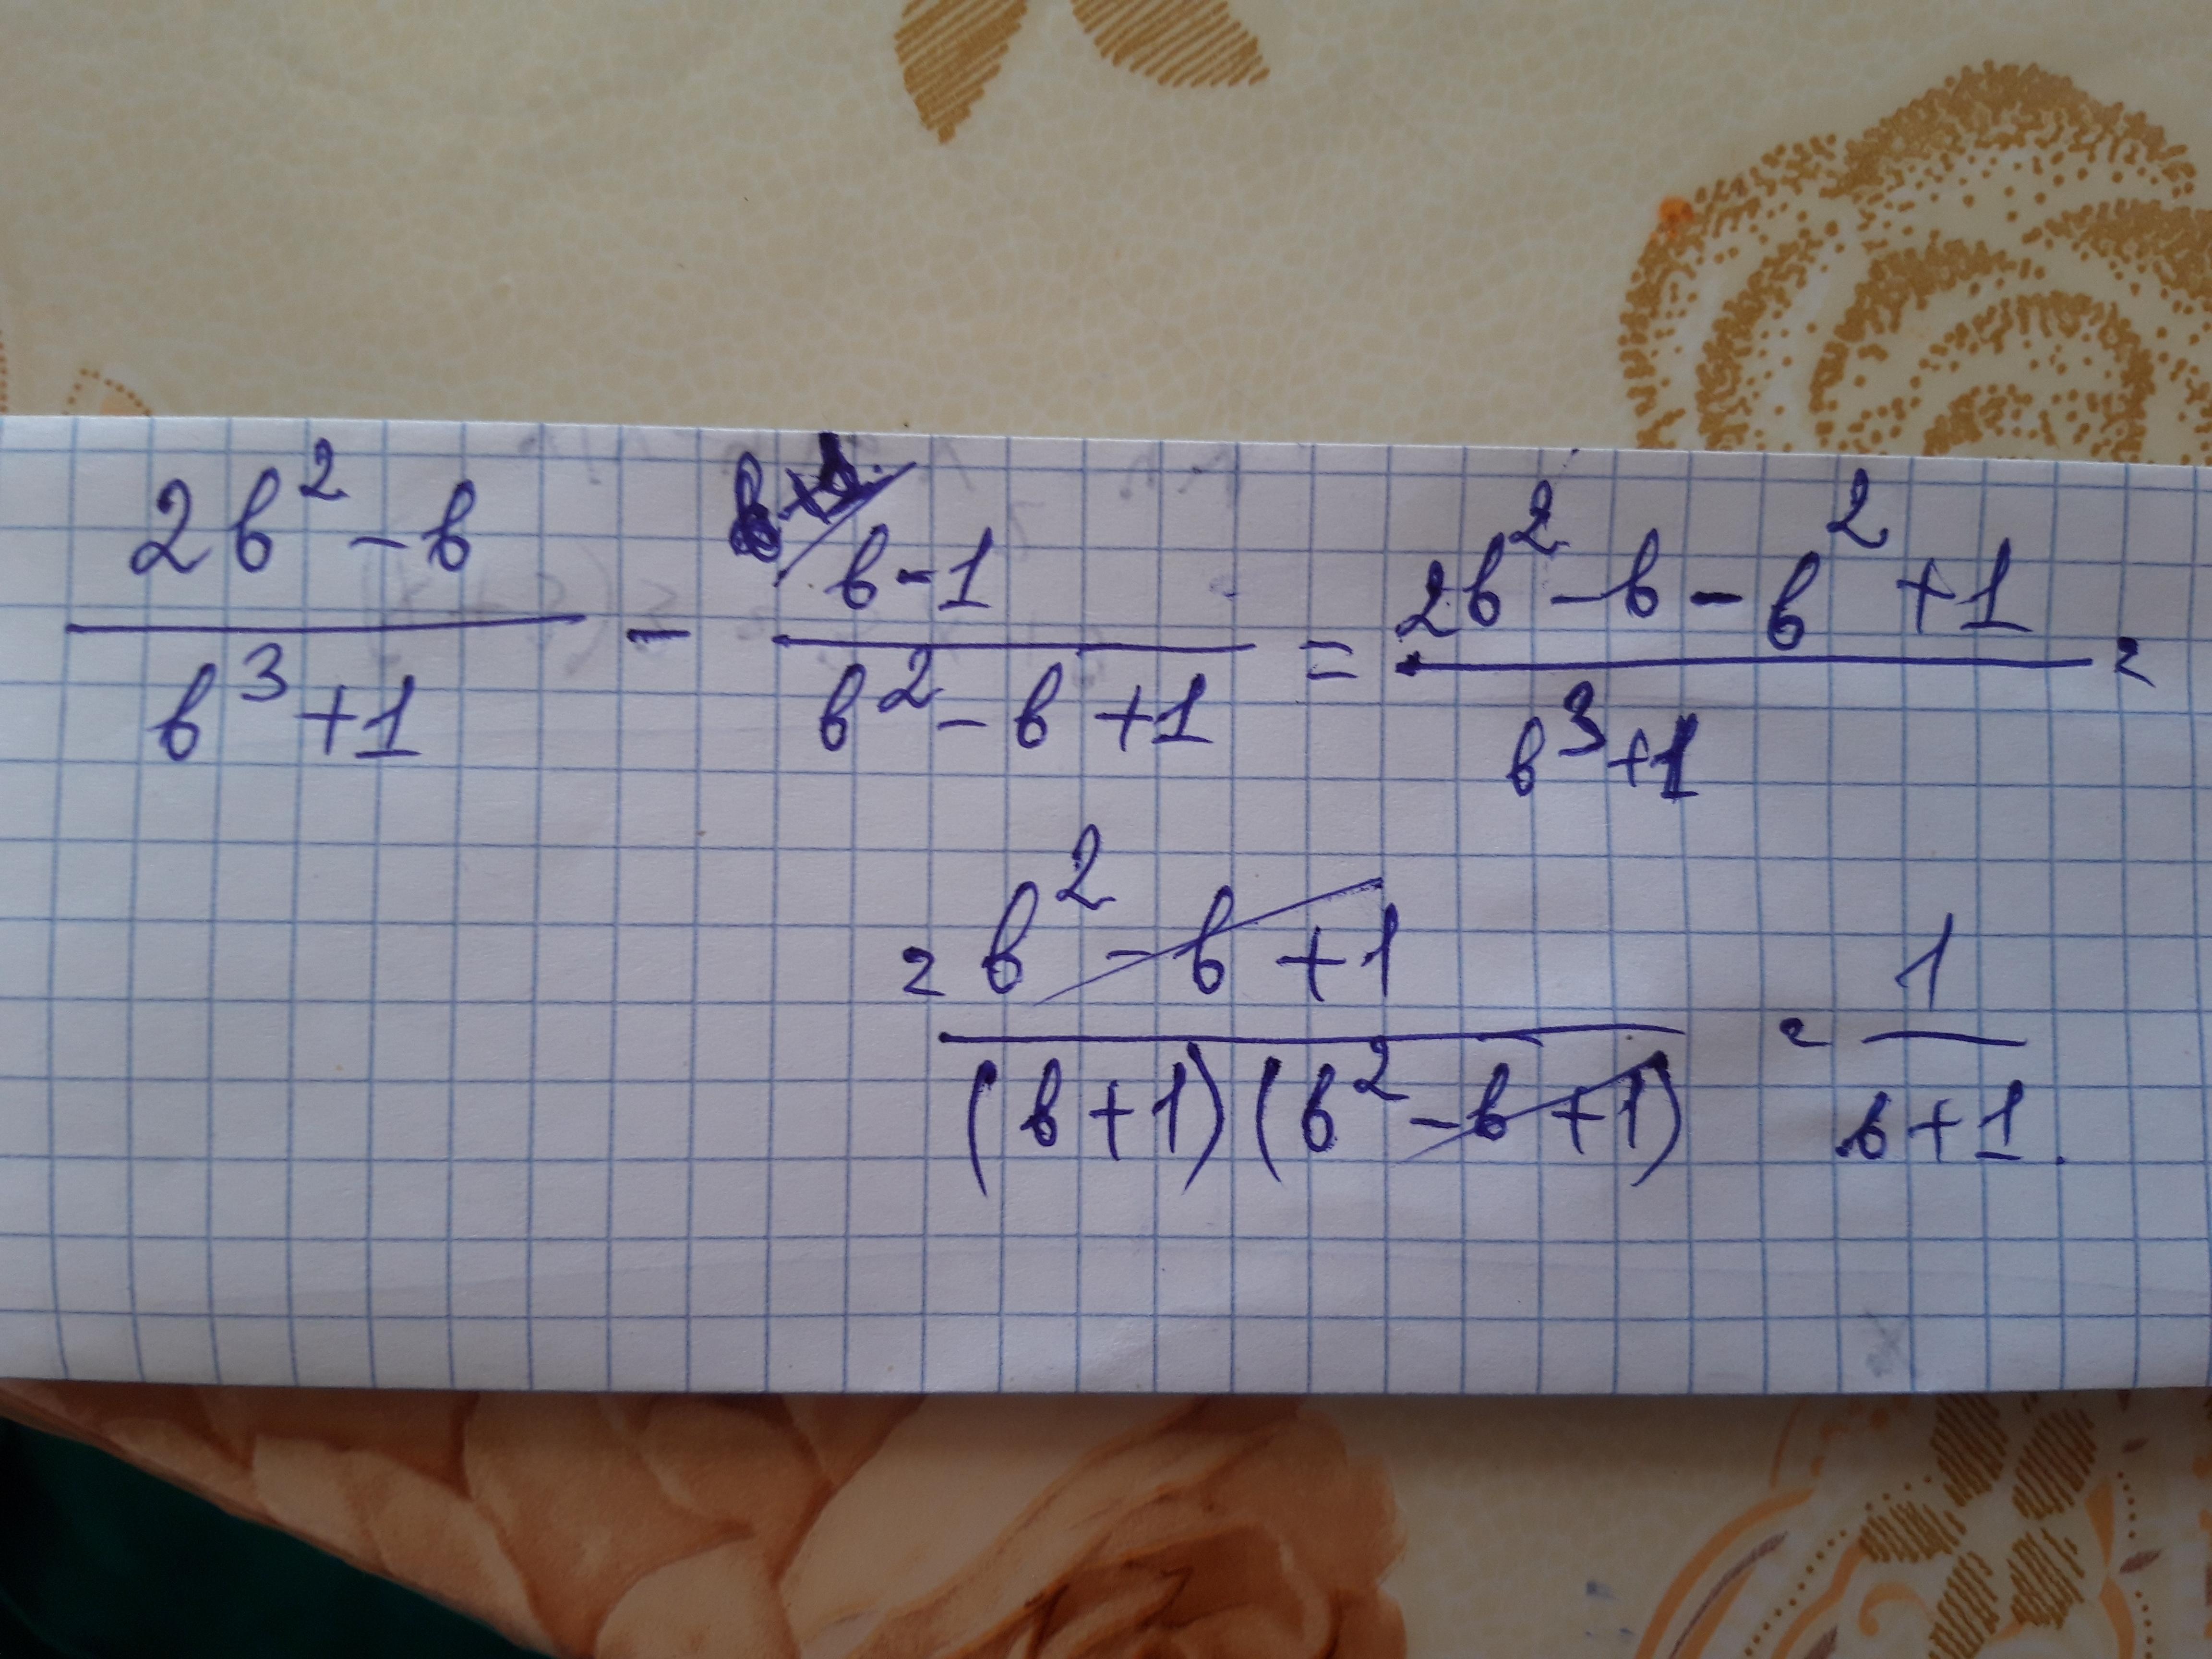 (2b² - b)/(b³ + 1) - (b - 1)/(b² - b + 1) = (2b² - b - b² + 1)/(b³ + 1) =
= (b² - b + 1)/((b + 1)(b² - b + 1)) = 1/(b + 1).